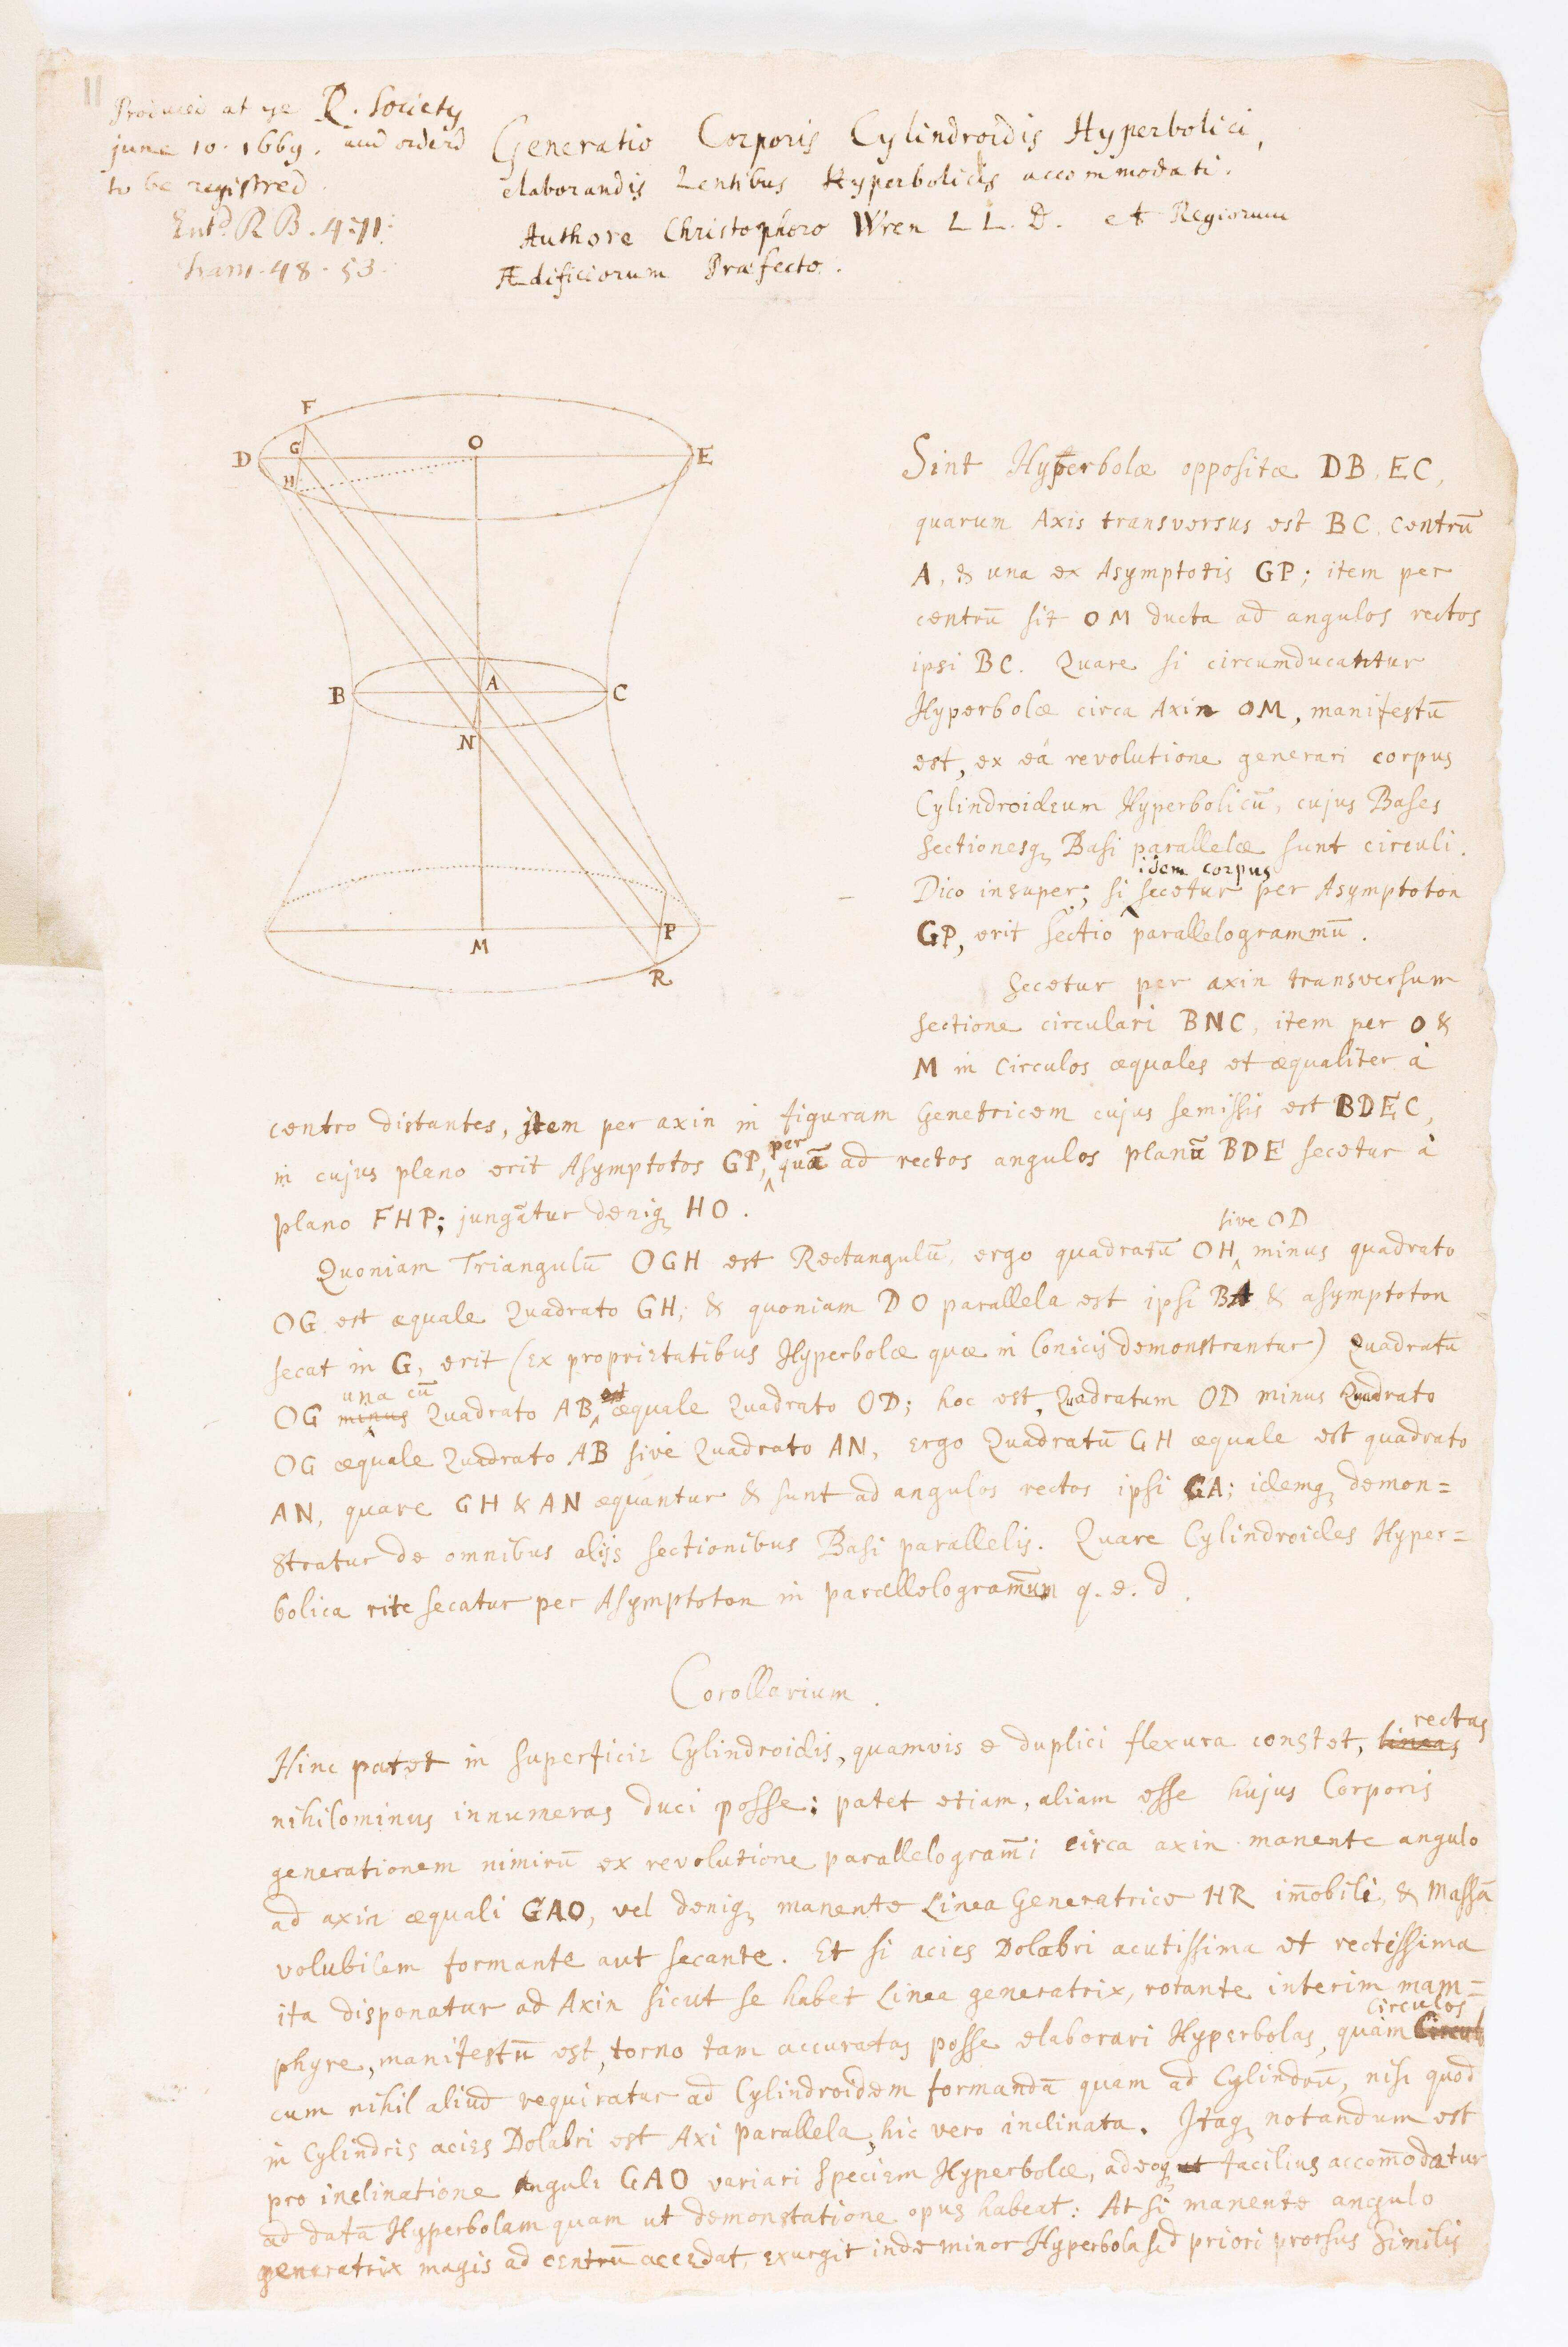 11
Produced at ye R. Society
june 10. 1669. and orderd
to be registred.
Entd. R B. 4. 71.
Tran. 48. 53.
Generatio Corporis Cylindroidis Hyperbolici,
elaborandis Lentibus Hyperbolicis accommodati.
Authore Christophoro Wren L L. D. et Regiorum
Ædificiorum Præfecto.
F
D G O E
H
B A C
N
M P
R
Sint Hyperbolæ oppositæ DB, EC,
quarum Axis transversus est BC, Centrū
A, & una ex Asymptotis GP; item per
centrū sit OM ducta ad angulos rectos
ipsi BC. Quare si circumducantur
Hyperbolæ circa Axin OM, manifestū
est, ex eâ revolutione generari corpus
Cylindroideum Hyperbolicū, cujus Bases
Sectionesq Basi parallelæ sunt circuli.
idem corpus
Dico insuper; si secetur per Asymptoton
GP, erit Sectio parallelogrammū.
Secetur per axin transversum
sectione circulari BNC, item per O &
M in Circulos æquales et æqualiter à
centro distantes, item per axin in figuram Genetricem cujus semissis est BDEC,
per
in cujus plano erit Asymptotos GP, quā ad rectos angulos planū BDE secetur à
plano FHP; jungātur deniq HO.
sive OD
Quoniam Triangulū OGH est Rectangulū, ergo quadratū OH minus quadrato
OG est æquale Quadrato GH; & quoniam DO parallela est ipsi BA & asymptoton
secat in G, erit (ex proprietatibus Hyperbolæ quæ in Conicis demonstrantur) Quadratū
una cū est
OG minus Quadrato AB æquale Quadrato OD; hoc est, Quadratum OD minus Quadrato
OG æquale Quadrato AB sive Quadrato AN, ergo Quadratū GH æquale est quadrato
AN, quare GH & AN æquantur & sunt ad angulos rectos ipsi GA; idemq demon=
stratur de omnibus alijs sectionibus Basi parallelis. Quare Cylindroides Hyper=
bolica rite secatur per Asymptoton in parallelogram̄um q. e. d.
Corollarium.
rectas
Hinc patet in superficie Cylindroidis, quamvis e duplici flexura constet, lineas
nihilominus innumeras duci posse: patet etiam, aliam esse hujus Corporis
generationem nimirū ex revolutione parallelogram̄i circa axin manente angulo
ad axin æquali GAO, vel deniq manente Linea Generatrice HR im̄obili, & Massā
volubilem formante aut secante. Et si acies Dolabri acutissima et rectissima
ita disponatur ad Axin sicut se habet Linea generatrix, rotante interim mam=
circulos
phyre, manifestū est, torno tam accuratas posse elaborari Hyperbolas, quàm Circul
cum nihil aliud requiratur ad Cylindroidem formandā quam ad Cylindrū, nisi quod
in Cylindris acies Dolabri est Axi parallela, hic vero inclinata. Itaq notandum est
pro inclinatione Anguli GAO variari Speciem Hyperbolæ, adeoq ut facilius accom̄odatur
ad datā Hyperbolam quam ut demonstratione opus habeat: At si manente angulo
generatrix magis ad centrū accedat, exurgit inde minor Hyperbola sed priori prorsus Similis